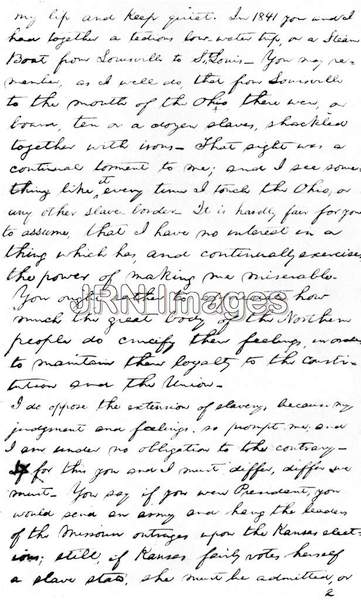 my lip and keep quiet. In 1841 you and I
had together a tedious low-water trip, on a Steam
Boat from Louisville to St. Louis- You may re-
member, as I well do, that from Louisville
to the mouth of the Ohio there were, on
board, ten or a dozen slaves, shackled
together with irons- That sight was a
continual torment to me; and I see some-
thing like it every time I touch the Ohio, or
any other slave border- It is hardly fair for you
to assume, that I have no interest in a
thing which has, and continually exercises,
the power of making me miserable-
You ought rather to appreciate how
much the great body of the Northern
people do crucify their feelings, in order
to maintain their loyalty to the Consti-
tution and the Union-
JRN Images
I do oppose the extension of slavery, because my
judgment and feelings so prompt me; and
I am under no obligation to the contrary-
If for this you and I must differ, differ we
must- You say if you were President, you
would send an army and hang the leaders
of the Missouri outrages upon the Kansas elect-
ions; still, if Kansas fairly votes herself
a slave state, she must be admitted, or
2